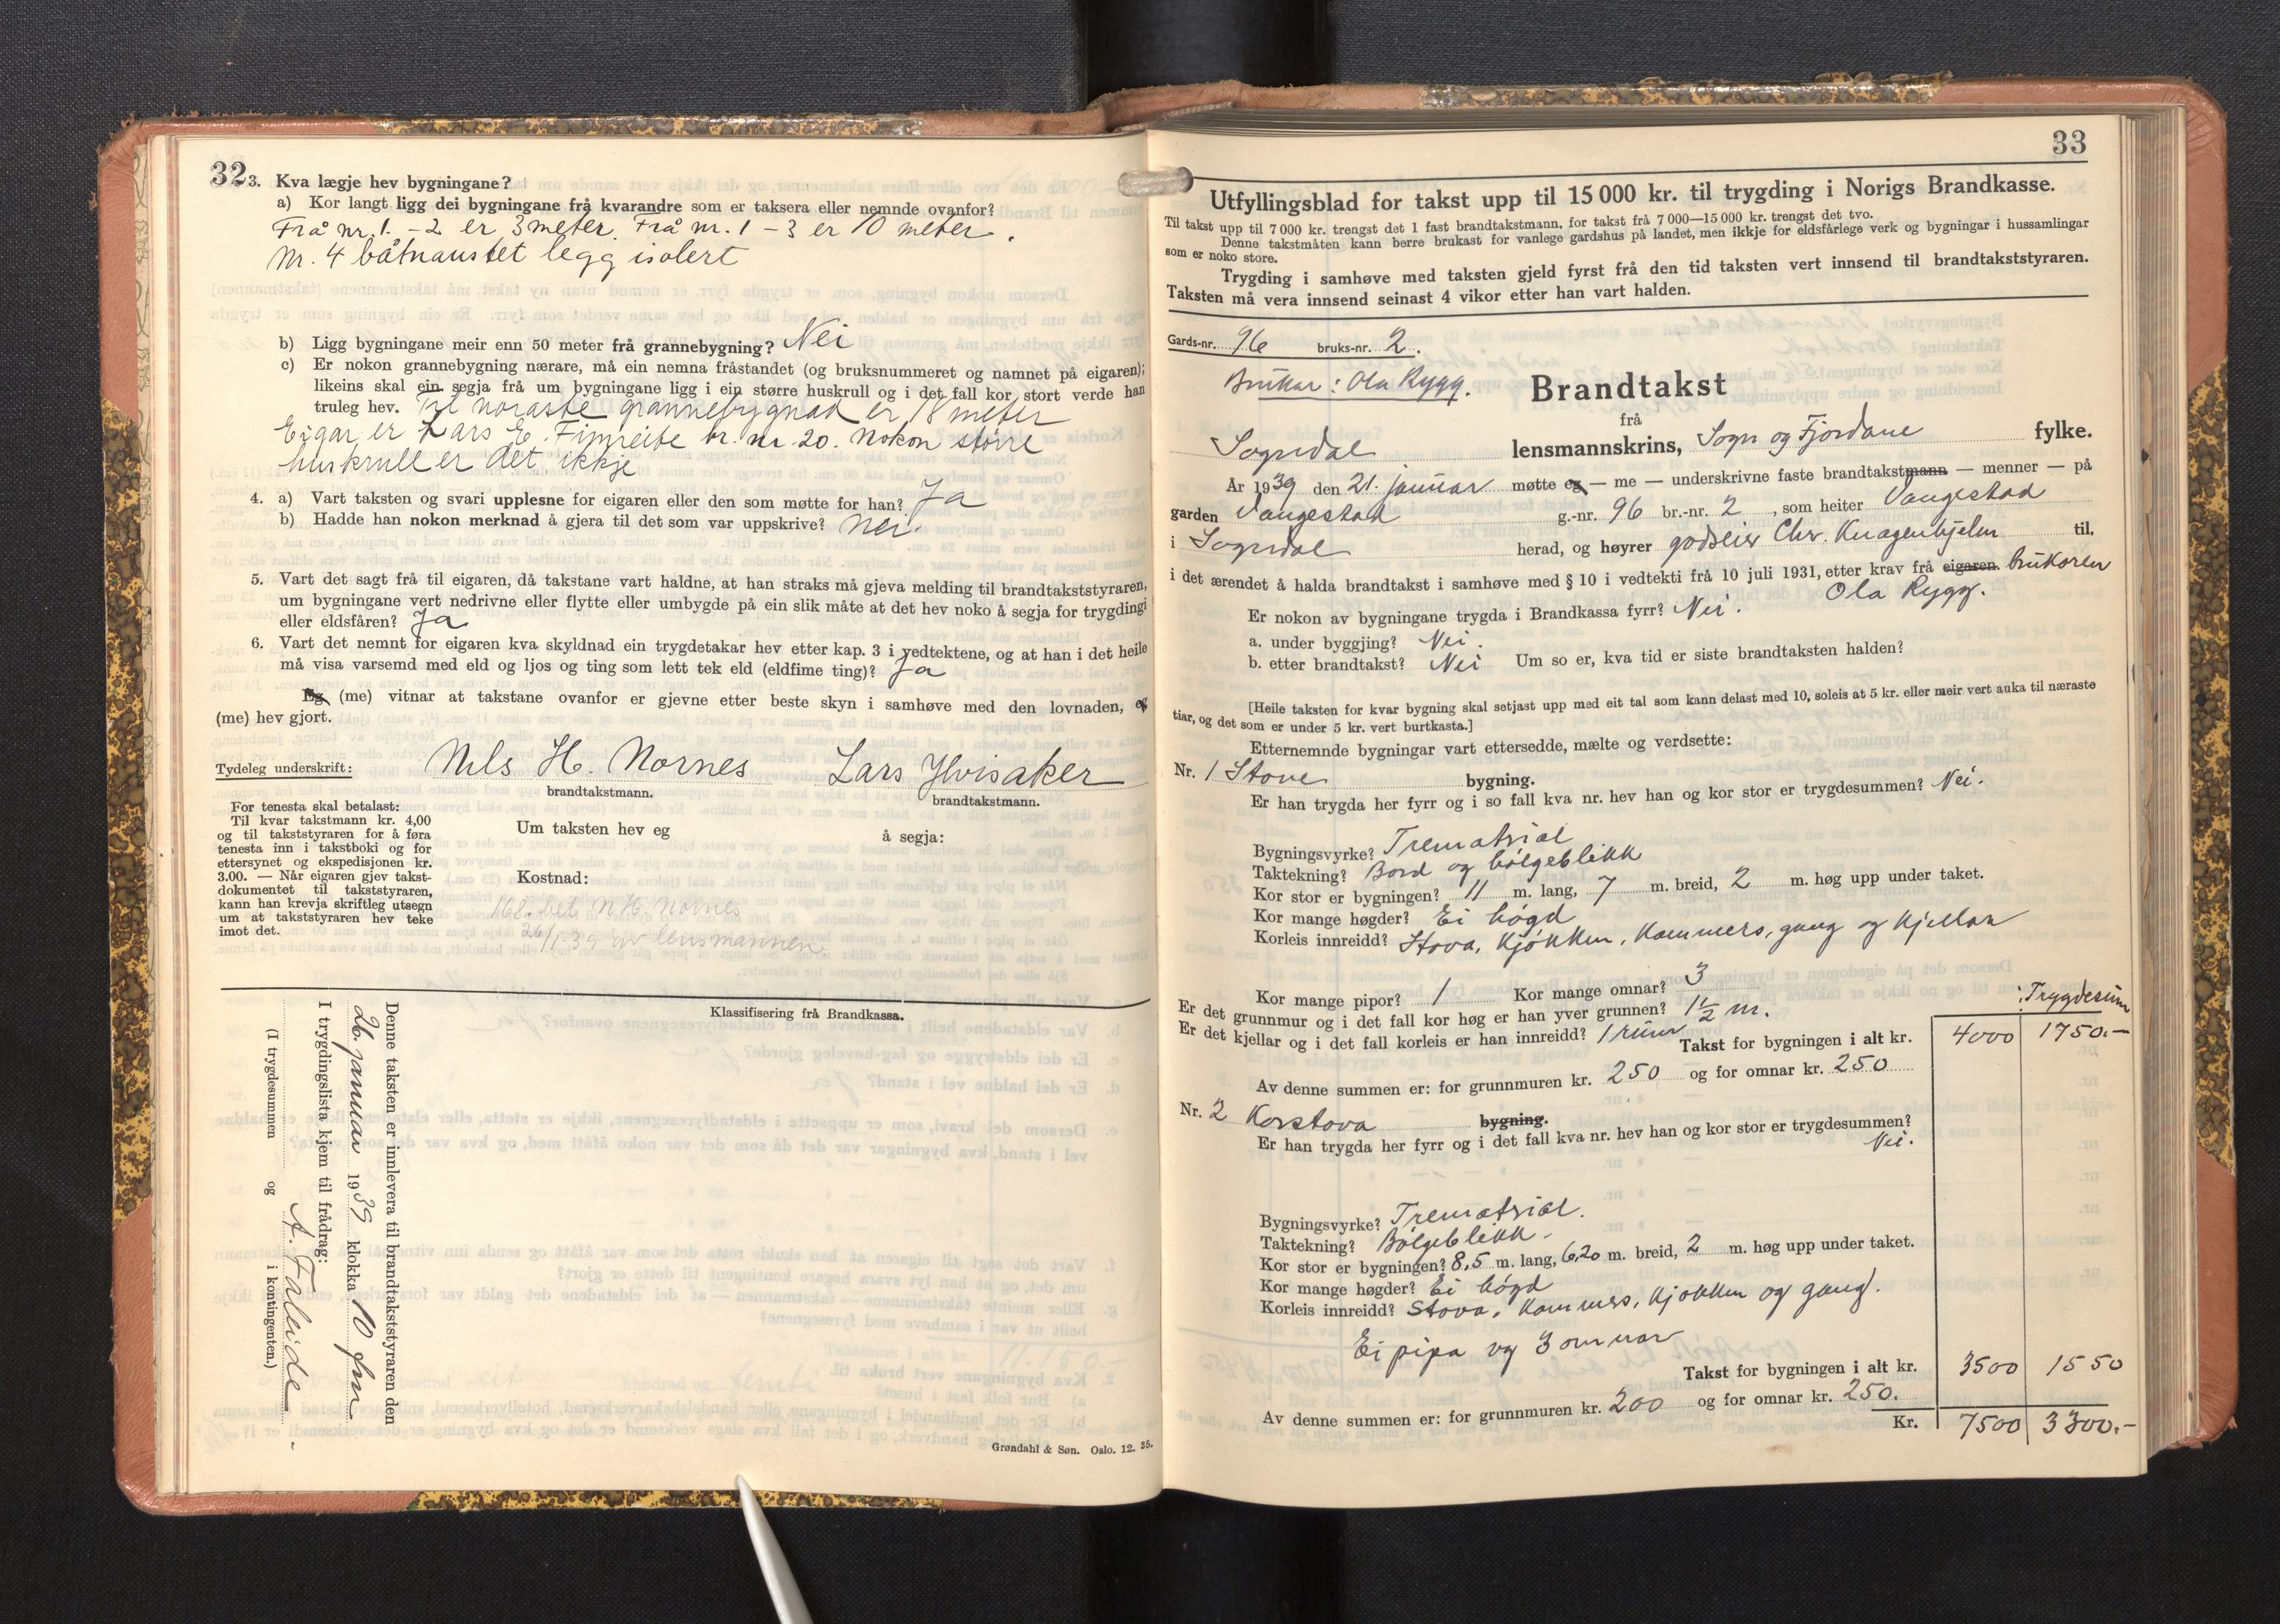 32
3. Kva lægje hev bygningane?
a) Kor langt ligg dei bygningane frå kvarandre som er taksera eller nemnde ovanfor?
Frå nr. 1 - 2 er 3 meter. Frå nr. 1 - 3 er 10 meter.
Nr. 4 båtnaustet legg isolert
b) Ligg bygningane meir enn 50 meter frå grannebygning? Nei
c) Er nokon grannebygning nærare, må ein nemna fråstandet (og bruksnummeret og namnet på eigaren);
likeins skal ein segja frå um bygningane ligg i ein større huskrull og i det fall kor stort verde han
truleg hev. Til næraste grannebygnad er 18 meter
Eigar er Lars E. Fimreite br. nr. 20. Nokon større
huskrull er det ikkje
4. a) Vart taksten og svari upplesne for eigaren eller den som møtte for han? Ja
b) Hadde han nokon merknad å gjera til det som var uppskrive? Nei.
5. Vart det sagt frå til eigaren, då takstane vart haldne, at han straks må gjeva melding til brandtakststyraren,
um bygningane vert nedrivne eller flytte eller umbygde på ein slik måte at det hev noko å segja for trygdingi
eller eldsfåren? Ja
6. Vart det nemnt for eigaren kva skyldnad ein trygdetakar hev etter kap. 3 i vedtektene, og at han i det heile
må visa varsemd med eld og ljos og ting som lett tek eld (eldfime ting)? Ja
Eg (me) vitnar at takstane ovanfor er gjevne etter beste skyn i samhøve med den lovnaden, eg
(me) hev gjort.
Tydeleg underskrift: Nils H. Nornes Lars Ylvisaker
brandtakstmann. brandtakstmann.
For tenesta skal betalast:
Til kvar takstmann kr. 4,00
og til takststyraren for å føra
tenesta inn i takstboki og for
ettersynet og ekspedisjonen kr.
3.00. — Når eigaren gjev takst-
dokumentet til takststyraren,
kann han krevja skriftleg utsegn
um at takststyraren hev teke
imot det.
Um taksten hev eg å segja:
Kostnad:
168. bet. N H. Nornes
26/1.39 av lensmannen
Klassifisering frå Brandkassa.
Denne taksten er innlevera til brandtakststyraren den
26. januar 1939 klokka 10 fm
I trygdingslista kjem til frådrag:
A. Faleide
(I trygdesummen og i kontingenten.)
Grøndahl & Søn. Oslo. 12. 35.
33
Utfyllingsblad for takst upp til 15 000 kr. til trygding i Norigs Brandkasse.
Til takst upp til 7 000 kr. trengst det 1 fast brandtakstmann, for takst frå 7 000—15 000 kr. trengst det tvo.
Denne takstmåten kann berre brukast for vanlege gardshus på landet, men ikkje for eldsfårlege verk og bygningar i hussamlingar
som er noko store.
Trygding i samhøve med taksten gjeld fyrst frå den tid taksten vert innsend til brandtakststyraren.
Taksten må vera innsend seinast 4 vikor etter han vart halden.
Gards-nr. 96 bruks-nr. 2.
Brukar: Ola Rygg.
Brandtakst
frå
Sogndal lensmannskrins, Sogn og Fjordane fylke.
År 1939 den 21. januar møtte eg — me — underskrivne faste brandtakstmann — menner — på
garden Vangestad g.-nr. 96 br.-nr. 2, som heiter Vangestad
i Sogndal herad, og høyrer godseier Chr. Knagenhjelm til,
i det ærendet å halda brandtakst i samhøve med § 10 i vedtekti frå 10 juli 1931, etter krav frå eigaren. brukaren
Ola Rygg.
Er nokon av bygningane trygda i Brandkassa fyrr? Nei.
a. under byggjing? Nei.
b. etter brandtakst? Nei Um so er, kva tid er siste brandtaksten halden?
[Heile taksten for kvar bygning skal setjast upp med eit tal som kann delast med 10, soleis at 5 kr. eller meir vert auka til næraste
tiar, og det som er under 5 kr. vert burtkasta.]
Etternemnde bygningar vart ettersedde, mælte og verdsette:
Nr. 1 Stove bygning.
Er han trygda her fyrr og i so fall kva nr. hev han og kor stor er trygdesummen? Nei.
Bygningsvyrke? Trematrial
Taktekning? Bord og bølgeblikk
Kor stor er bygningen? 11 m. lang, 7 m. breid, 2 m. høg upp under taket.
Kor mange høgder? Ei høgd
Korleis innreidd? Stova, Kjøkken, Kammers, gang og Kjellar
Kor mange pipor? 1 Kor mange omnar? 3
Er det grunnmur og i det fall kor høg er han yver grunnen? 1 1/2 m.
Trygdesum
Er det kjellar og i det fall korleis er han innreidd? 1 rum
Takst for bygningen i alt kr. 4000 1750.—
Av denne summen er: for grunnmuren kr. 250 og for omnar kr. 250
Nr. 2 Korstova bygning.
Er han trygda her fyrr og i det fall kva nr. hev han og kor stor er trygdesummen?
Nei.
Bygningsvyrke? Trematrial.
Taktekning? Bølgeblikk.
Kor stor er bygningen? 8,5 m. lang, 6,20 m. breid, 2 m. høg upp under taket.
Kor mange høgder? Ei høgd
Korleis innreidd? Stova, Kammers, Kjøkken og gang.
Ei pipa og 3 omnar
Takst for bygningen i alt kr. 3500 1550
Av denne summen er: for grunnmuren kr. 200 og for omnar kr. 250.
Kr. 7500 3300.-